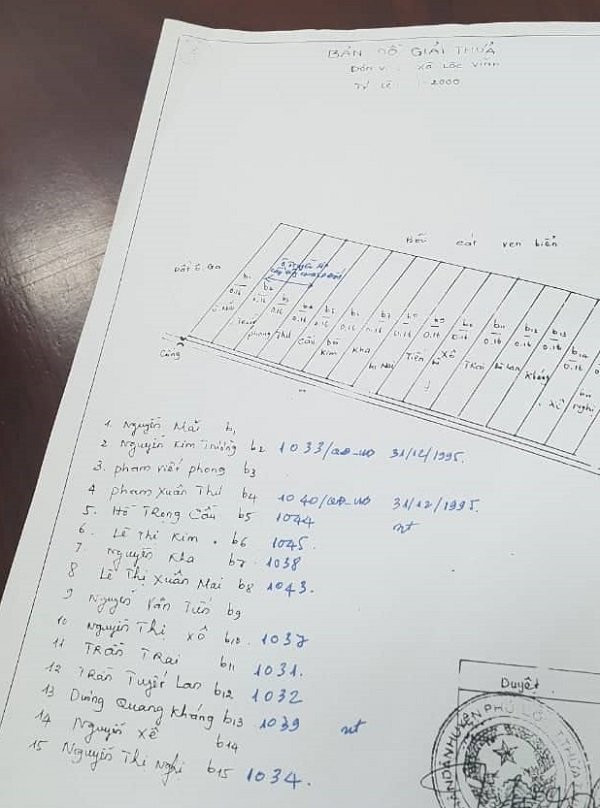 BẢN ĐỒ GIẢI THỬA
Đơn vị: Xã Lộc Vĩnh
Tỷ lệ 1-2000
Bãi cát ven biển
Đất Ô. Ga
b1 b2 b3 b4 b5 b6
0.16 0.16 0.16 0.16 0.16 0.16
phong Thư Cầu bà Kim Kha b. Mai Tiến bà Xô Trai bà Lan Kháng Xê bà nghị
Cống
1. Nguyễn Mãi b1
2 Nguyễn Kim Trường b2 1033/QĐ-UB 31/12/1995.
3. phạm viết phong b3
4 phạm Xuân Thư b4 1040/QĐ-UB 31/12/1995.
5. Hồ Trọng Cầu b5 1044 nt
6. Lê Thị Kim . b6 1045
7 Nguyễn Kha b7 1038
8 Lê Thị Xuân Mai b8 1043.
9 Nguyễn Văn Tiến b9
10 Nguyễn Thị Xô b10 1037
11 Trần Trai b11 1031.
12 Trần Tuyết Lan b12 1032
13 Dương Quang Kháng b13 1039 nt
14 Nguyễn Xê b14
15 Nguyễn Thị Nghị b15 1034.
Duyệt
HUYỆN PHÚ LỘC T.THỪA